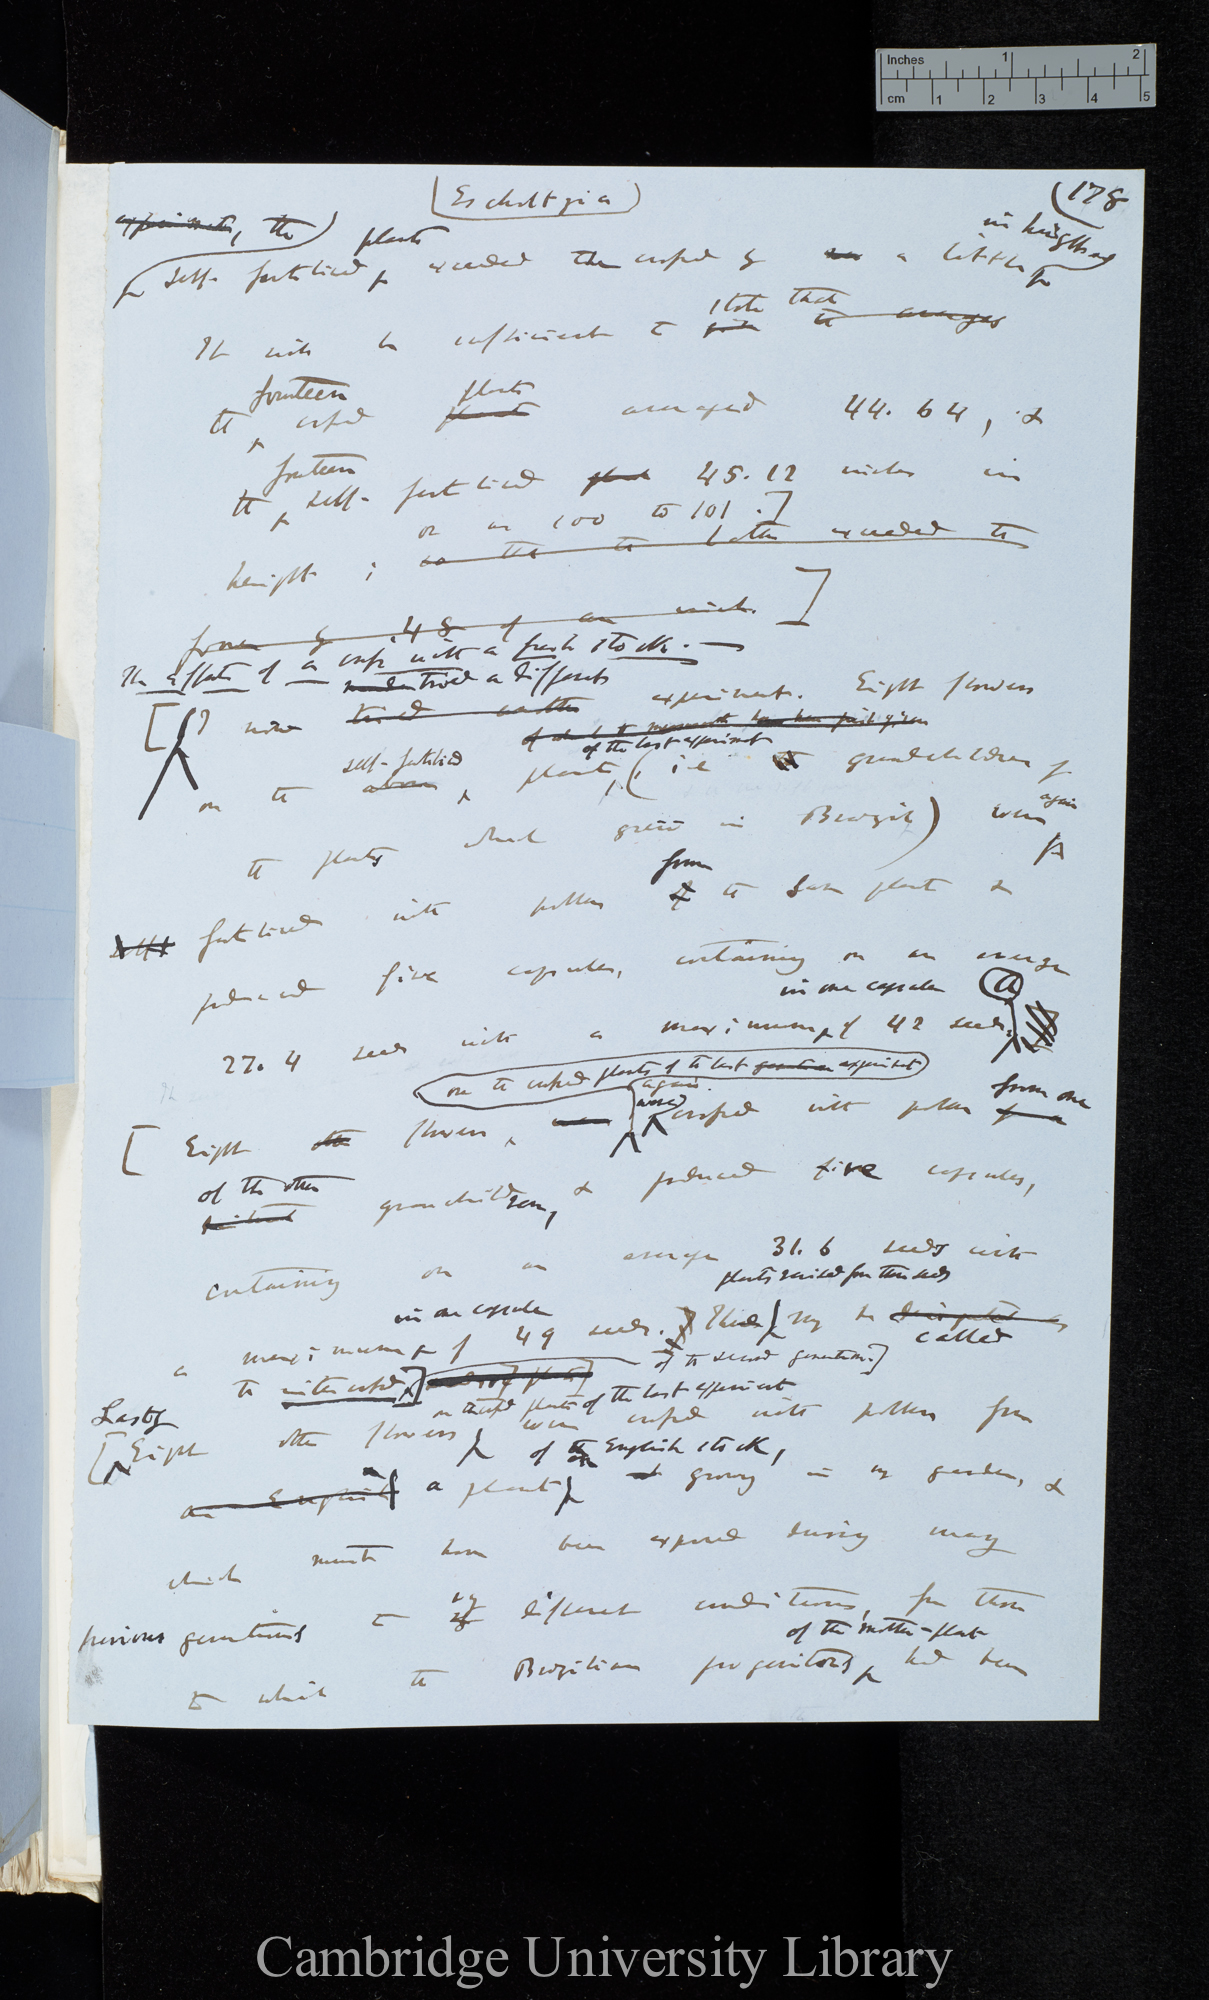 Inches 1 2
cm 1 2 3 4 5
(Escholtzia)
(178
experiments, the plants in height by
self-fertilised exceeded the crossed by a little
It will be sufficient to state that
give the averages
fourteen plants
the crossed plants averaged 44.64, &
fourteen
the self-fertilised plants 45.12 inches in
or as 100 to 101.]
height; so that the latter exceeded the
former by .48 of an inch.]
The effects of a cross with a fresh stock.—
tried a different
[I now tried another experiment. Eight flowers
of the last experiment
self-fertilised
on the above plants, (i.e. the grandchildren of
again
the plants which grew in Brazil) were
from
self fertilised with pollen of the same plant &
produced five capsules, containing on an average
in one capsule (a)
27.4 seeds with a maximum of 42 seeds.
on the crossed plants of the last generation experiment
again were from one
[Eight other flowers, were crossed with pollen of a
of the other
grandchildren, & produced five capsules,
containing on an average 31.6 seeds with
plants raised from these seeds
in one capsule
a maximum of 49 seeds. These may be
called
of the second generation.]
the intercrossed]
Lastly on the crossed plants of the last experiment
[Eight other flowers were crossed with pollen from
of the English stock,
an English a plant growing in my garden, &
which must have been exposed during many
previous generations to very different conditions, from those
of the mother-plant
to which the Brazilian progenitors had been
Cambridge University Library